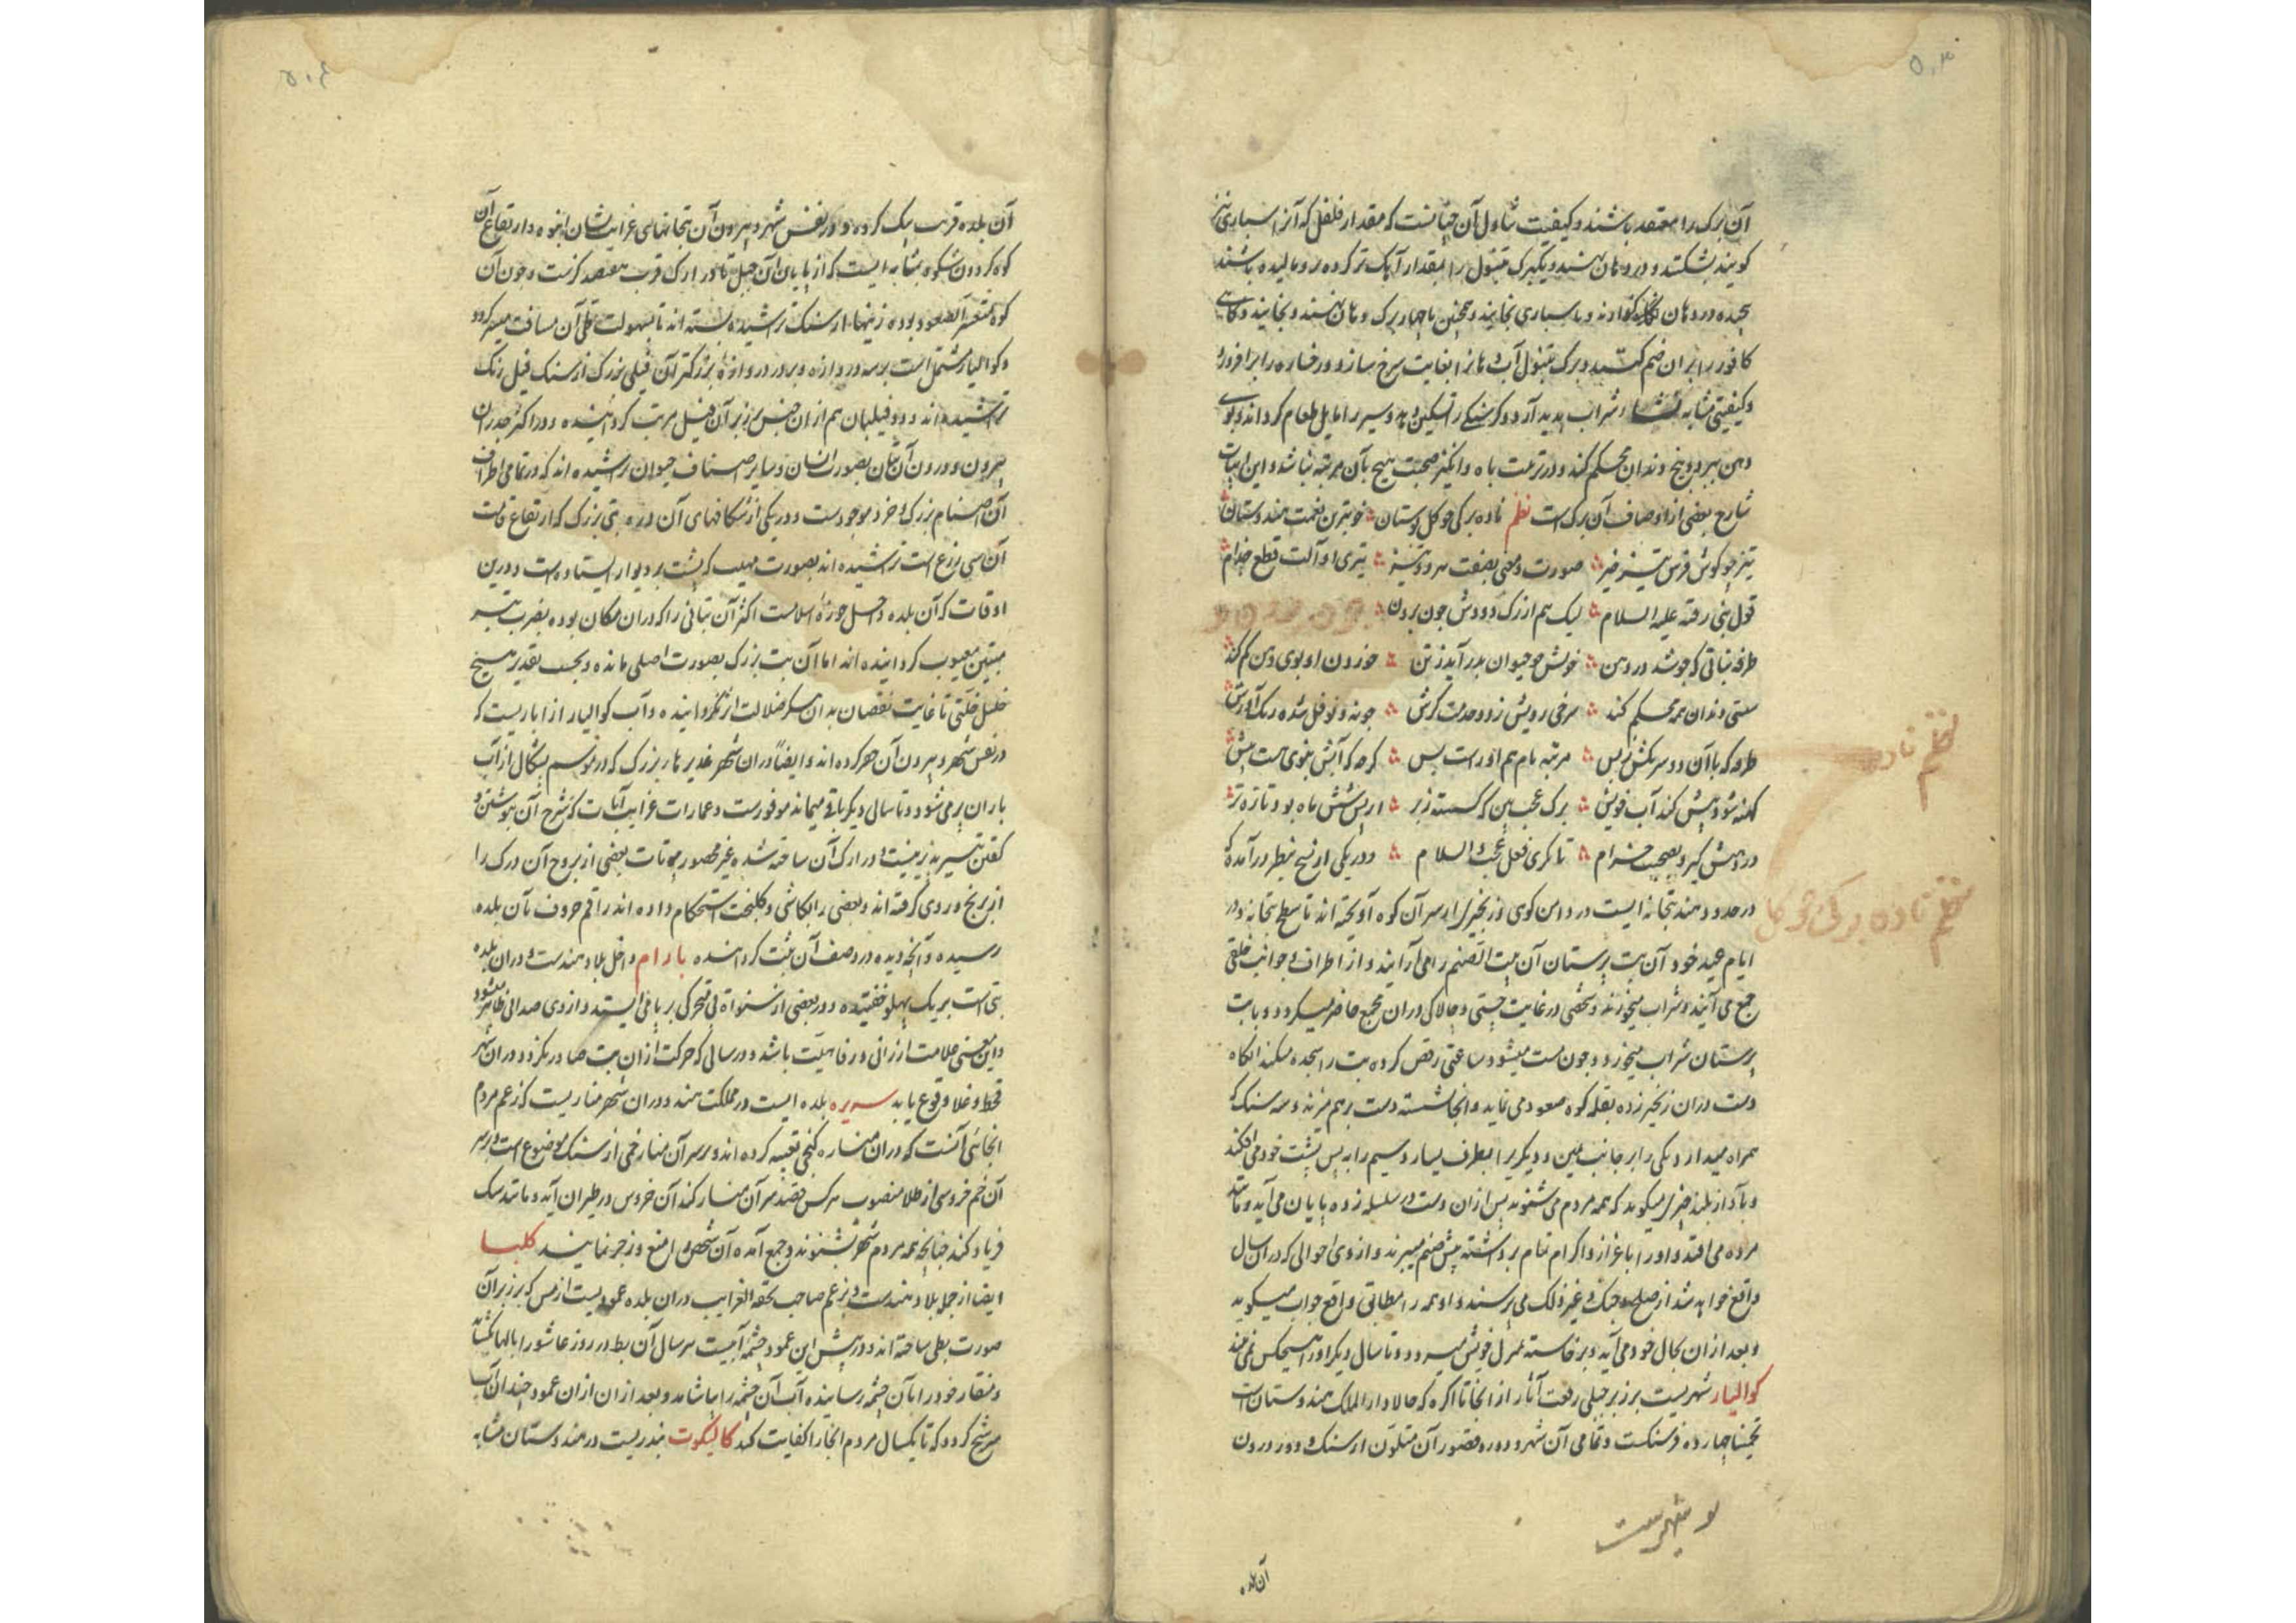 آن برک را معتقد باشند و کیفیت تناول آن چنانست که مقدار فلفل که آنرا سپاری نیز
کویند بشکنند و در دهان نهند و یکبرک تنبول را بمقدار آهک تر کرده برو مالیده باشند
پیچیده در دهان نکاه و با سپاری بخایند و همچنین تا چهار برک در دهان نهند و بخایند و کاهی
کافور را بران ضم کنند و برک تنبول آب دهانرا بغایت سرخ سازد و رخساره را برافروزد
و کیفیتی مشابه شراب پدید آرد و کرسنکی را تسکین دهد و سیر را مایل طعام کرداند و بوی
دهن ببرد و بیخ دندان محکم کند و در تربیت باه و انکیز صحبت هیچ بآن مرتبه نباشد و این ابیات
شارح بعضی از اوصاف آن برکست نظم نادره برکی چو کل بوستان خوبترین نعمت هندوستان
تیز چو کوش فرس تیز خیز صورت و معنی بصفت هر دو تیز تیزی او آلت قطع جذام
قول نبی رفته علیه السلام لیک هم از رک دودش خون برون
طرفه نباتی که چو شد در دهن خونش چو حیوان بدر آید ز تن خوردن او بوی دهن کم کند
سستی دندان همه محکم کند سرخی رویش ز دو خدمت کرش چونه و فوفل شده رنک آورش
طرفه که با آن دو سر یکش بس مرتبه نام هم او راست بس کرچه که آبش بنوی هست بیش
کهنه شود بیش کند آب خویش برک عجب بین که کسسته ز بر از پس شش ماه بود تازه تر
در دهنش کیر و بصحبت خرام تا نکری فعل عجب والسلام و در یکی از نسخ بنظر درآمده که
در حدود هند بتخانه ایست در دامن کوهی و زنجیری از سر آن کوه آویخته اند تا سطح بتخانه و در
ایام عید خود آن بت پرستان آن بیت الصنم را می آرایند و از اطراف و جوانب خلقی
جمع می آیند و شراب میخورند و شخصی در غایت چستی و چالاکی دران مجمع حاضر میکردد و با بت
پرستان شراب میخورد و چون مست میشود ساعتی رقص کرده بت را سجده میکند آنکاه
دست دران زنجیر زده بقله کوه صعود می نماید و آنجا نشسته دست برهم میزند و سه سنک که
همراه میدارد یکی را بر جانب یمین و دیکریرا بطرف یسار و سیم را به پس پشت خود می افکند
و بآواز بلند چیزی میکوید که همه مردم می شنوند پس ازان دست در سلسله زده پایان می آید و مانند
مرده می افتد و او را با عزاز و اکرام تمام برداشته پیش صنم میبرند و از وی احوالی که دران سال
واقع خواهد شد از صلح و جنک و غیر ذلک می پرسند و او همه را مطابق واقع جواب میکوید
و بعد ازان بحال خود می آید و برخاسته بمنزل خویش میرود و تا سال دیکر او را هیچکس نمی بیند
کوالیار شهریست بر زبر جبلی رفعت آثار از آنجا تا اکره که حالا دار الملک هندوستانست
تخمینا چهارده فرسنکست و تمامی آن شهر و دوره قصور آن متلون از سنک و در درون
آن بلده
آن بلده قریب یک کرده و در نفس شهر و بیرون آن بتخانهای غرایب نشان انبوه و ارتفاع آن
کوه کردون شکوه بمثابه ایست که از پایان آن جبل تا در ارک قریب هفتصد کزست و چون آن
کوه متعسر الصعود بوده زینها از سنک تراشیده بسته اند تا بسهولت قطع آن مسافت میسر کردد
و کوالیار مشتمل است بر سه دروازه و بر در دروازه بزرکتر آن فیلی بزرک از سنک فیل رنک
تراشیده اند و دو فیلبان هم ازان جنس بر زبر آن فیل مرتب کردانیده و در اکثر جدران
بیرون و درون آن بتان بصورت انسان و سایر اصناف حیوان تراشیده اند که در تمامی اطراف
آن اصنام بزرک و خرد موجودست و در یکی از شکافهای آن دره بتی بزرک که ارتفاع قامت
آن سی ذرع است تراشیده اند بصورت مهیب که پشت بر دیوار ایستاده است و درین
اوقات که آن بلده داخل حوزه اسلامست اکثر آن بتانی را که دران مکان بوده بضرب تبر
معیوب کردانیده اند اما آن بت بزرک بصورت اصلی مانده و بحسب تقدیر هیچ
خلیل خلتی تا غایت نقصان بدان پیکر ضلالت اثر نکردانیده و آب کوالیار از اباریست که
در نفس شهر و بیرون آن حفر کرده اند و ایضاً دران شهر غدیرهاء بزرک که در موسم بشکال از آب
باران پر می شود و تا سال دیکر باقی میماند موفورست و عمارات غرایب آیات که شرح آن بنوشتن و
کفتن تیسیر پذیر نیست در ارک آن ساخته شده غیر محصور بیوتات بعضی از بروج آن درک را
از برنج و روی کرفته اند و بعضی را بکاشی و استحکام داده اند راقم حروف بآن بلده
رسیده و آنچه دیده در وصف آن ثبت کردانیده بارام داخل بلاد هندست دران بلده
بتی است بر یک پهلو خفتیده و در بعضی از سنوات بی تحرکی بر پا می ایستد و از وی صدائی ظاهر میشود
و این معنی علامت ارزانی و رفاهیت باشد و در سالی که حرکت ازان بت صادر نکردد دران شهر
قحط و غلا وقوع یابد سیره بلده ایست در مملکت هند و دران شهر مناریست که زعم مردم
آنجائی آنست که دران مناره کنجی تعبیه کرده اند و بر سر آن منار خمی از سنک موضوع است و بر سر
آن خم خروسی از طلا منصوب هر کس قصد سر آن منار کند آن خروس در طیران آید و مانند سک
فریاد کند چنانچه همه مردم شهر بشنوند و جمع آمده آن شخص را منع و زجر نمایند کلبا
ایضا از جمله بلاد هندست و بزعم صاحب تحفه الغرایب دران بلده عمودیست از مس که بر زبر آن
صورت بطی ساخته اند و در پیش این عمود چشمه آبیست هر سال آن بط در روز عاشورا بالها بکشاید
و منقار خود را بآن چشمه رسانیده آب آن چشمه را بیاشامد و بعد ازان ازان عمود چندان آب
مترشح کردد که تا یکسال مردم آنجا را کفایت کند کالیکوت بندریست در هندوستان مشابه